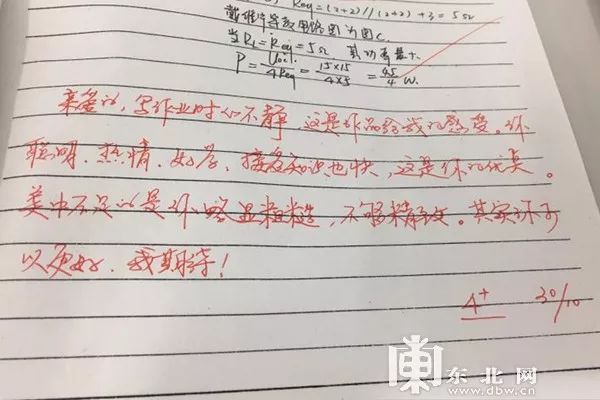 Req=(2+2)//(2+2)+3=5Ω
戴维宁等效电路图为图c.
当RL=Req=5Ω 其功率最大.
P=Uoc²/4Req=15×15/4×5=45/4 W.
亲爱的,写作业时心不静,这是作品给我的感受。你
聪明、热情、好学、接受知识也快,这是你的优点。
美中不足的是你略显粗糙,不够精致。其实你可
以更好,我期待!
4+ 30/10
东北网
www.dbw.cn